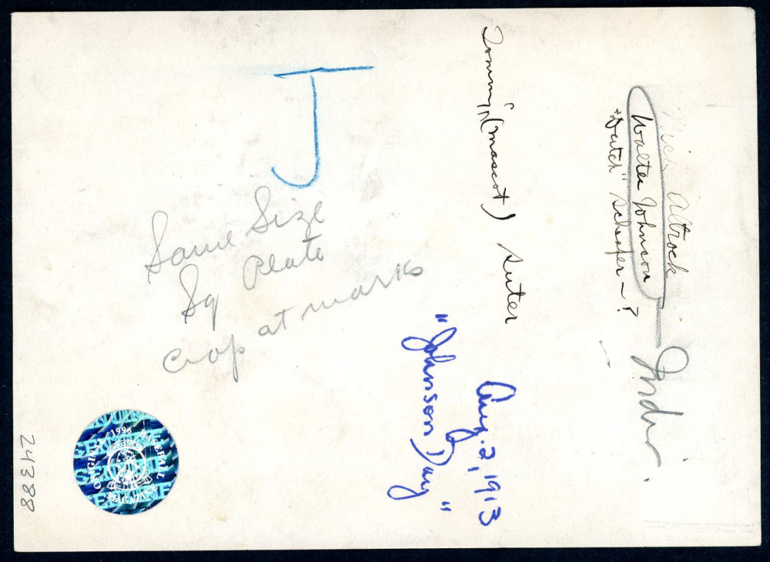 J
Same Size
Sq Plate
crop at marks
Tommy (mascot) Suter
Nick Altrock
Walter Johnson
"Dutch" Schaefer - ?
Indiv.
Aug. 2, 1913
"Johnson Day"
24388